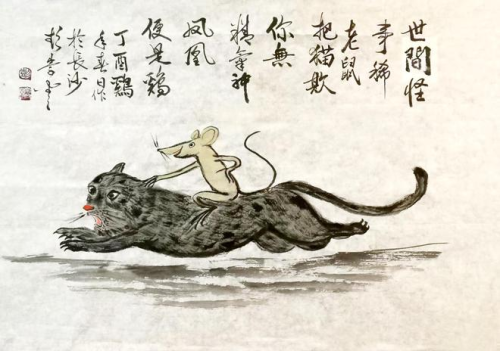 世間怪
事稀
老鼠
把猫欺
你無
精氣神
凤凰
便是鷄
丁酉鷄
年春日作
於長沙